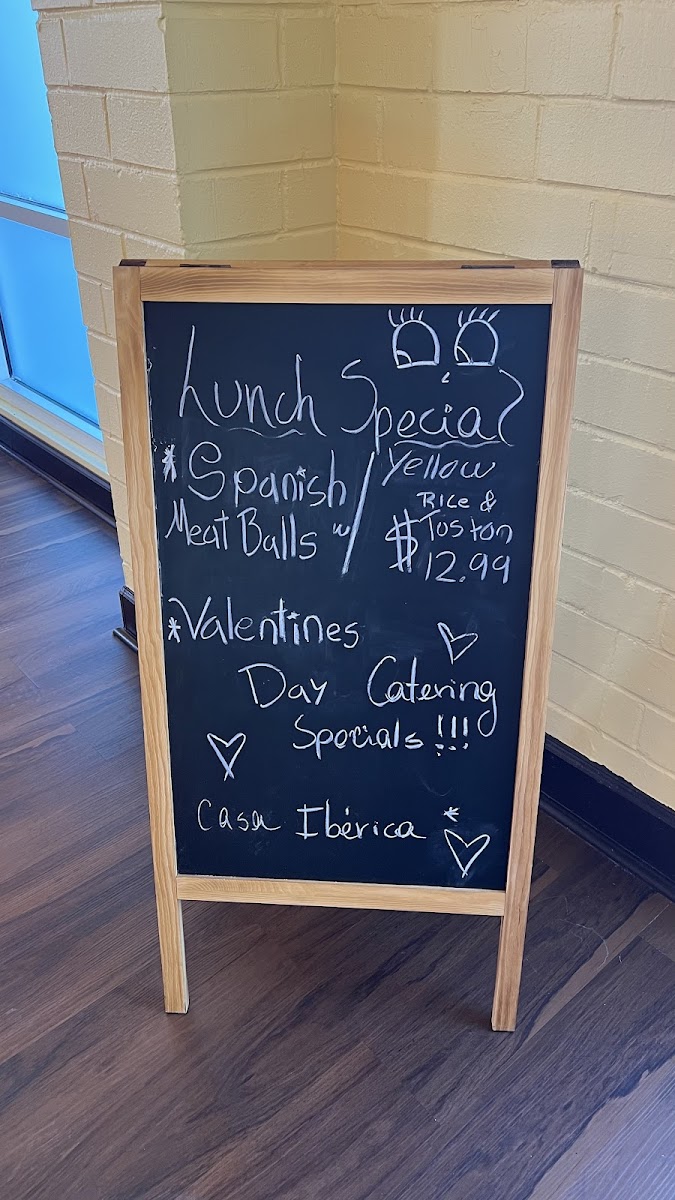 Lunch Special
* Spanish
Meat Balls w/
Yellow
Rice &
Toston
$12.99
* Valentines
Day Catering
Specials !!!
Casa Ibérica *